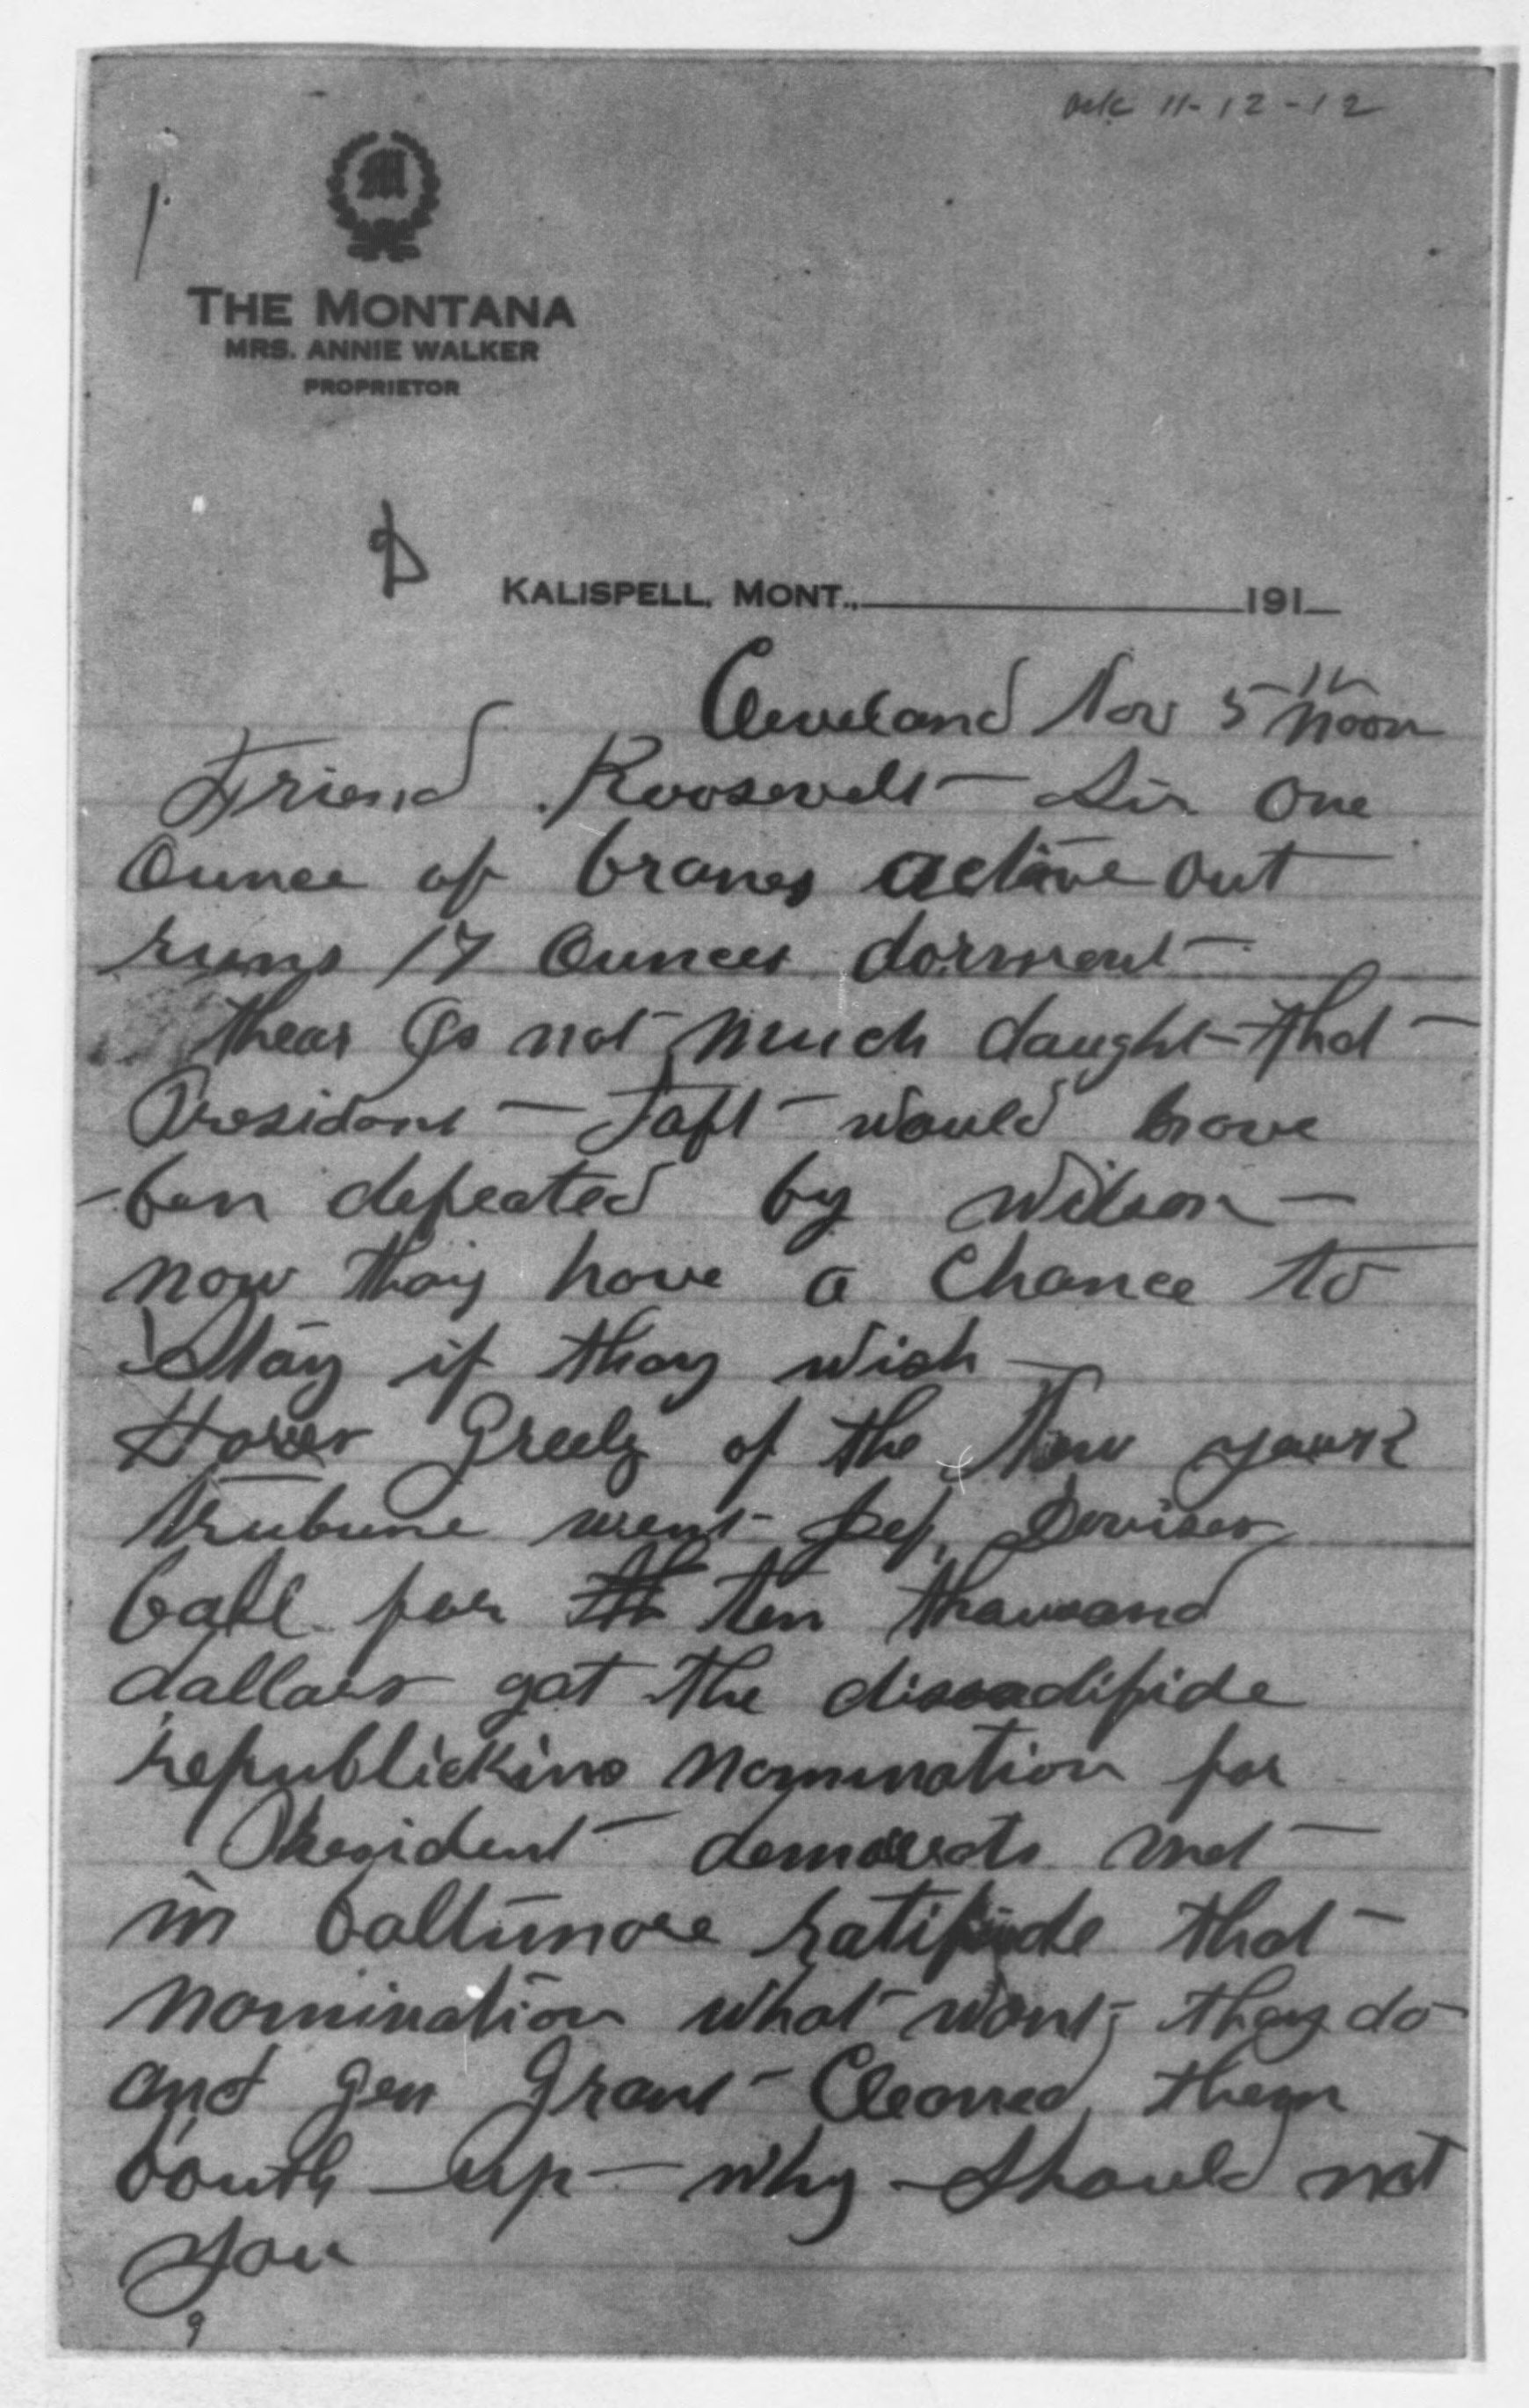 ack 11-12-12
M
THE MONTANA
MRS. ANNIE WALKER
PROPRIETOR
KALISPELL, MONT., 191
Cleveland Nov 5th noon
Friend Roosevelt Sir one
Ounce of branes active out
runs 17 Ounces dorment
thear is not much daught that
President Taft would have
ben defeated by Wilson
now thay have a Chance to
Stay if thay wish
Greely of the New yourk
trubune went Jef, Davises
bale for ten thausand
dallars gat the dissadifide
republickins nomination for
President demacrats met
in baltimore ratifide that
nomination what wont thay do
and gen Grant Cleaned them
bouth up why should not
you